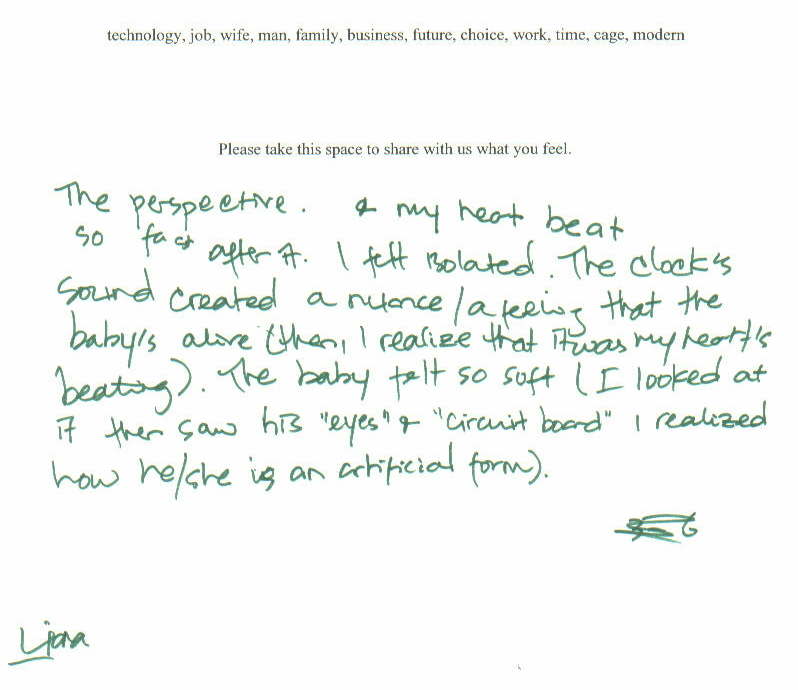 technology, job, wife, man, family, business, future, choice, work, time, cage, modern
Please take this space to share with us what you feel.
The perspective. & my heat beat
so fast after it. I felt isolated. The clock's
sound created a nuance / a feeling that the
baby's alive (then, I realize that it was my heart's
beating). The baby felt so soft (I looked at
it then saw his "eyes" & "circuit board" I realized
how he/she is an artificial form).